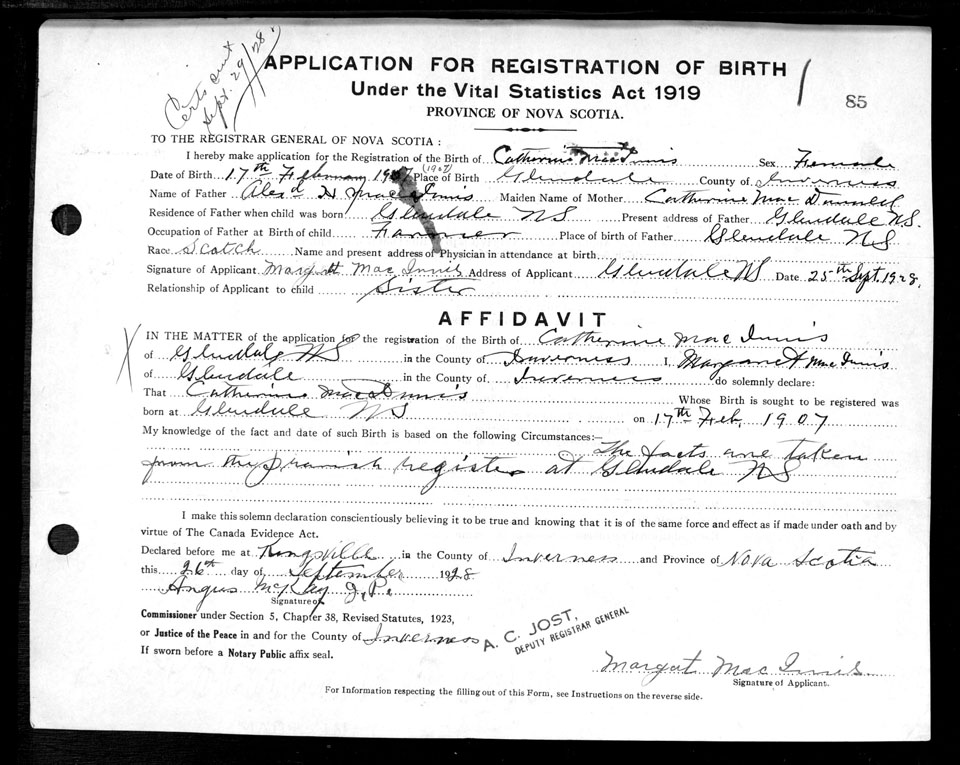 Certs sent
Sept. 29/28
APPLICATION FOR REGISTRATION OF BIRTH
Under the Vital Statistics Act 1919
PROVINCE OF NOVA SCOTIA.
85
TO THE REGISTRAR GENERAL OF NOVA SCOTIA:
I hereby make application for the Registration of the Birth of Catherine MacInnis Sex Female
Date of Birth 17th February 1907 (1907) Place of Birth Glendale County of Inverness
Name of Father Alexd H MacInnis Maiden Name of Mother Catherine MacDonnell
Residence of Father when child was born Glendale NS Present address of Father Glendale NS.
Occupation of Father at Birth of child Farmer Place of birth of Father Glendale NS
Race Scotch Name and present address of Physician in attendance at birth
Signature of Applicant Margaret MacInnis Address of Applicant Glendale NS Date 25th Sept. 1928.
Relationship of Applicant to child Sister
AFFIDAVIT
IN THE MATTER of the application for the registration of the Birth of Catherine MacInnis
of Glendale NS in the County of Inverness I, Margaret MacInnis
of Glendale in the County of Inverness do solemnly declare:
That Catherine MacInnis Whose Birth is sought to be registered was
born at Glendale NS on 17th Feb. 1907
My knowledge of the fact and date of such Birth is based on the following Circumstances:— The facts are taken
from the parish register at Glendale NS
I make this solemn declaration conscientiously believing it to be true and knowing that it is of the same force and effect as if made under oath and by
virtue of The Canada Evidence Act.
Declared before me at Kingsville in the County of Inverness and Province of Nova Scotia
this 26th day of September 1928
Angus McKay J.P.
Signature of
Commissioner under Section 5, Chapter 38, Revised Statutes, 1923,
or Justice of the Peace in and for the County of Inverness
If sworn before a Notary Public affix seal.
A. C. JOST,
DEPUTY REGISTRAR GENERAL
Margaret MacInnis
Signature of Applicant.
For Information respecting the filling out of this Form, see Instructions on the reverse side.